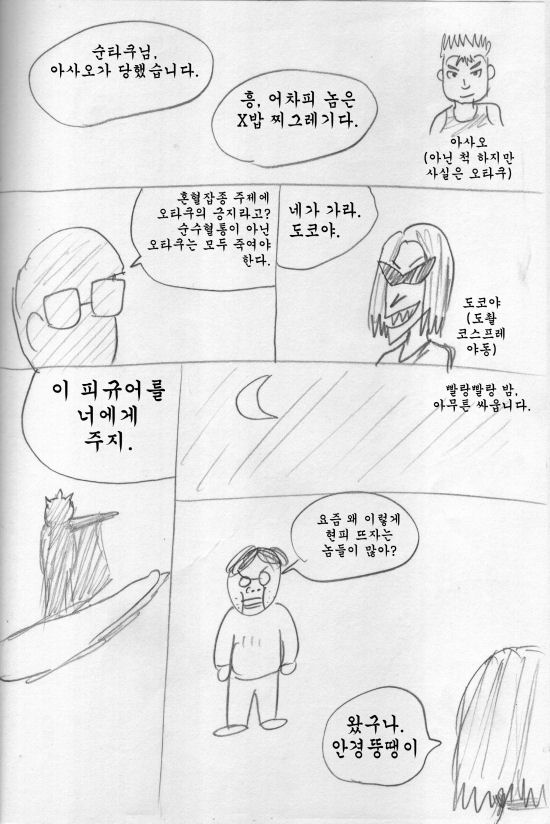 순타쿠님,
아사오가 당했습니다.
흥, 어차피 놈은
X밥 찌그레기다.
아사오
(아닌 척 하지만
사실은 오타쿠)
혼혈잡종 주제에
오타쿠의 긍지라고?
순수혈통이 아닌
오타쿠는 모두 죽여야
한다.
네가 가라.
도코야.
도코야
(도촬
코스프레
야동)
이 피규어를
너에게
주지.
빨랑빨랑 밤,
아무튼 싸웁니다.
요즘 왜 이렇게
현피 뜨자는
놈들이 많아?
왔구나.
안경뚱땡이